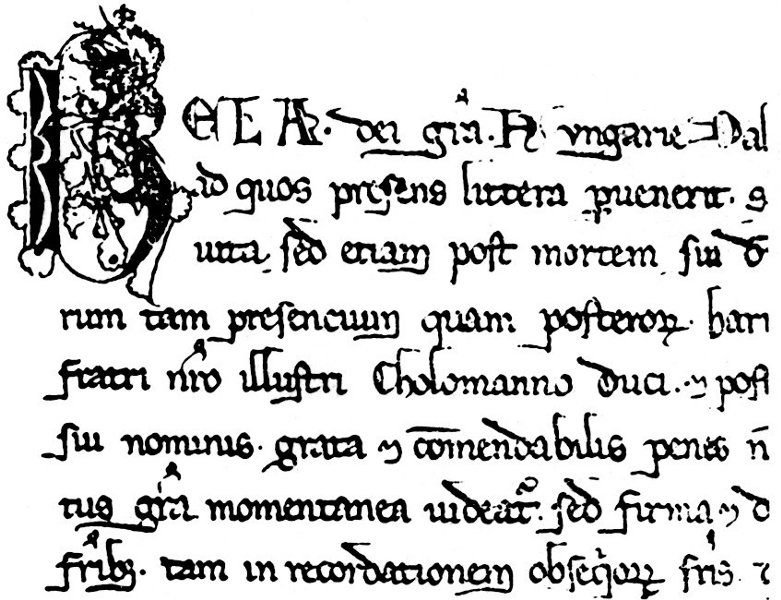 BELA. dei gr̃a. H vngarie Dal
ad quos presens littera ꝑuenerit. s
uita sed etiam post mortem sui d
rum tam presencium quam posteroꝝ. hari
fratri nr̃o illustri Cholomanno duci. ⁊ post
sui nominis. grata ⁊ com̄endabilis penes n̄
tus gr̃a momentanea uideat᷑. sed firma ⁊ d
fr̃ibꝫ. tam in recordationem obseq̇oꝝ fr̃is